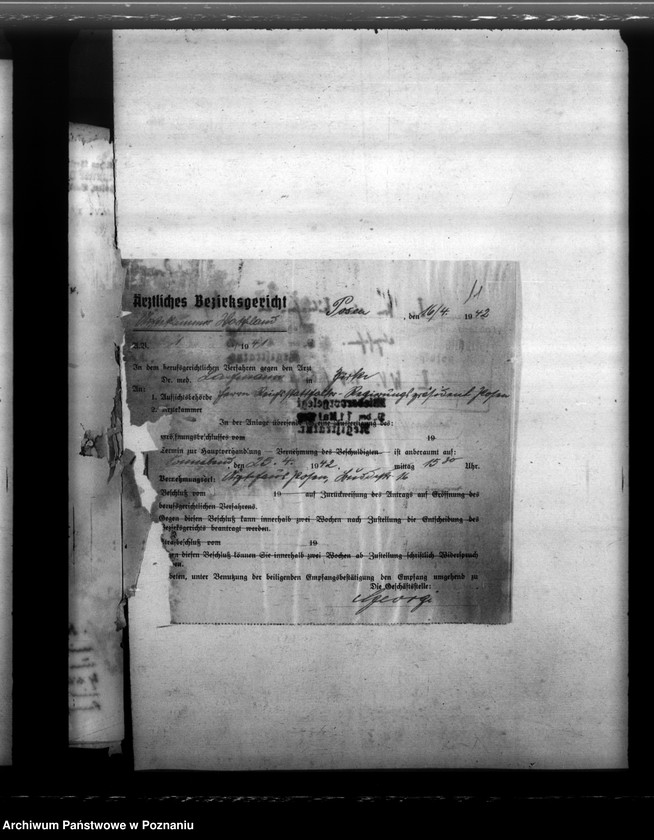 Ärztliches Bezirksgericht
Posen, den 16/4. 1942
A.V. 1941
In dem berufsgerichtlichen Verfahren gegen den Arzt
Dr. med. in
An:
1. Aufsichtsbehörde Herrn Reichsstatthalter - Regierungspräsident Posen
2. Ärztekammer
In der Anlage übersende
eröffnungsbeschlusses vom 19
Termin zur Hauptverhandlung - Vernehmung des Beschuldigten ist anberaumt auf:
Sonnabend den 4. 1942. mittag 15 30 Uhr.
Vernehmungsort: Ärztehaus Posen, 16
Beschluß vom 19 auf Zurückweisung des Antrags auf Eröffnung des
berufsgerichtlichen Verfahrens.
Gegen diesen Beschluß kann innerhalb zwei Wochen nach Zustellung die Entscheidung des
Bezirksgerichts beantragt werden.
vom 19
en diesen Beschluß können Sie innerhalb zwei Wochen ab Zustellung schriftlich Widerspruch
en.
beten, unter Benutzung der beiligenden Empfangsbestätigung den Empfang umgehend zu
Die Geschäftsstelle:
Georgi
Archiwum Państwowe w Poznaniu